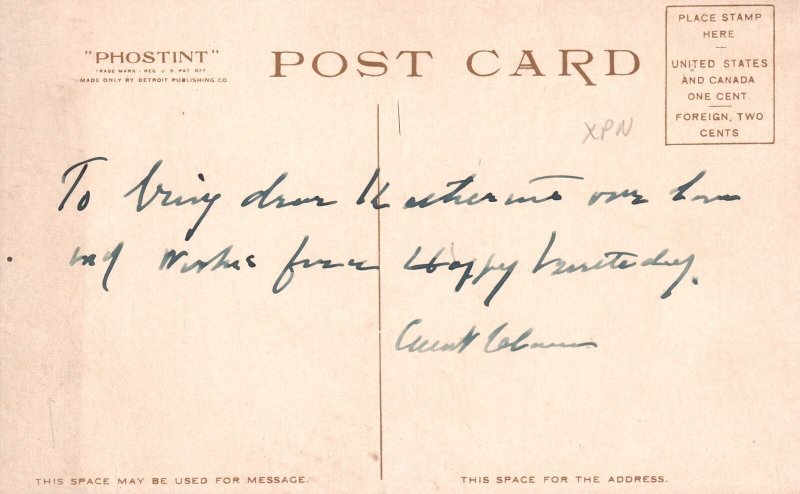 "PHOSTINT"
TRADE MARK - REG. U.S. PAT. OFF.
MADE ONLY BY DETROIT PUBLISHING CO.
POST CARD
PLACE STAMP
HERE
UNITED STATES
AND CANADA
ONE CENT
FOREIGN, TWO
CENTS
XPN
To bring dear Katherine our love
and wishes for a Happy birthday.
Aunt
THIS SPACE MAY BE USED FOR MESSAGE.
THIS SPACE FOR THE ADDRESS.